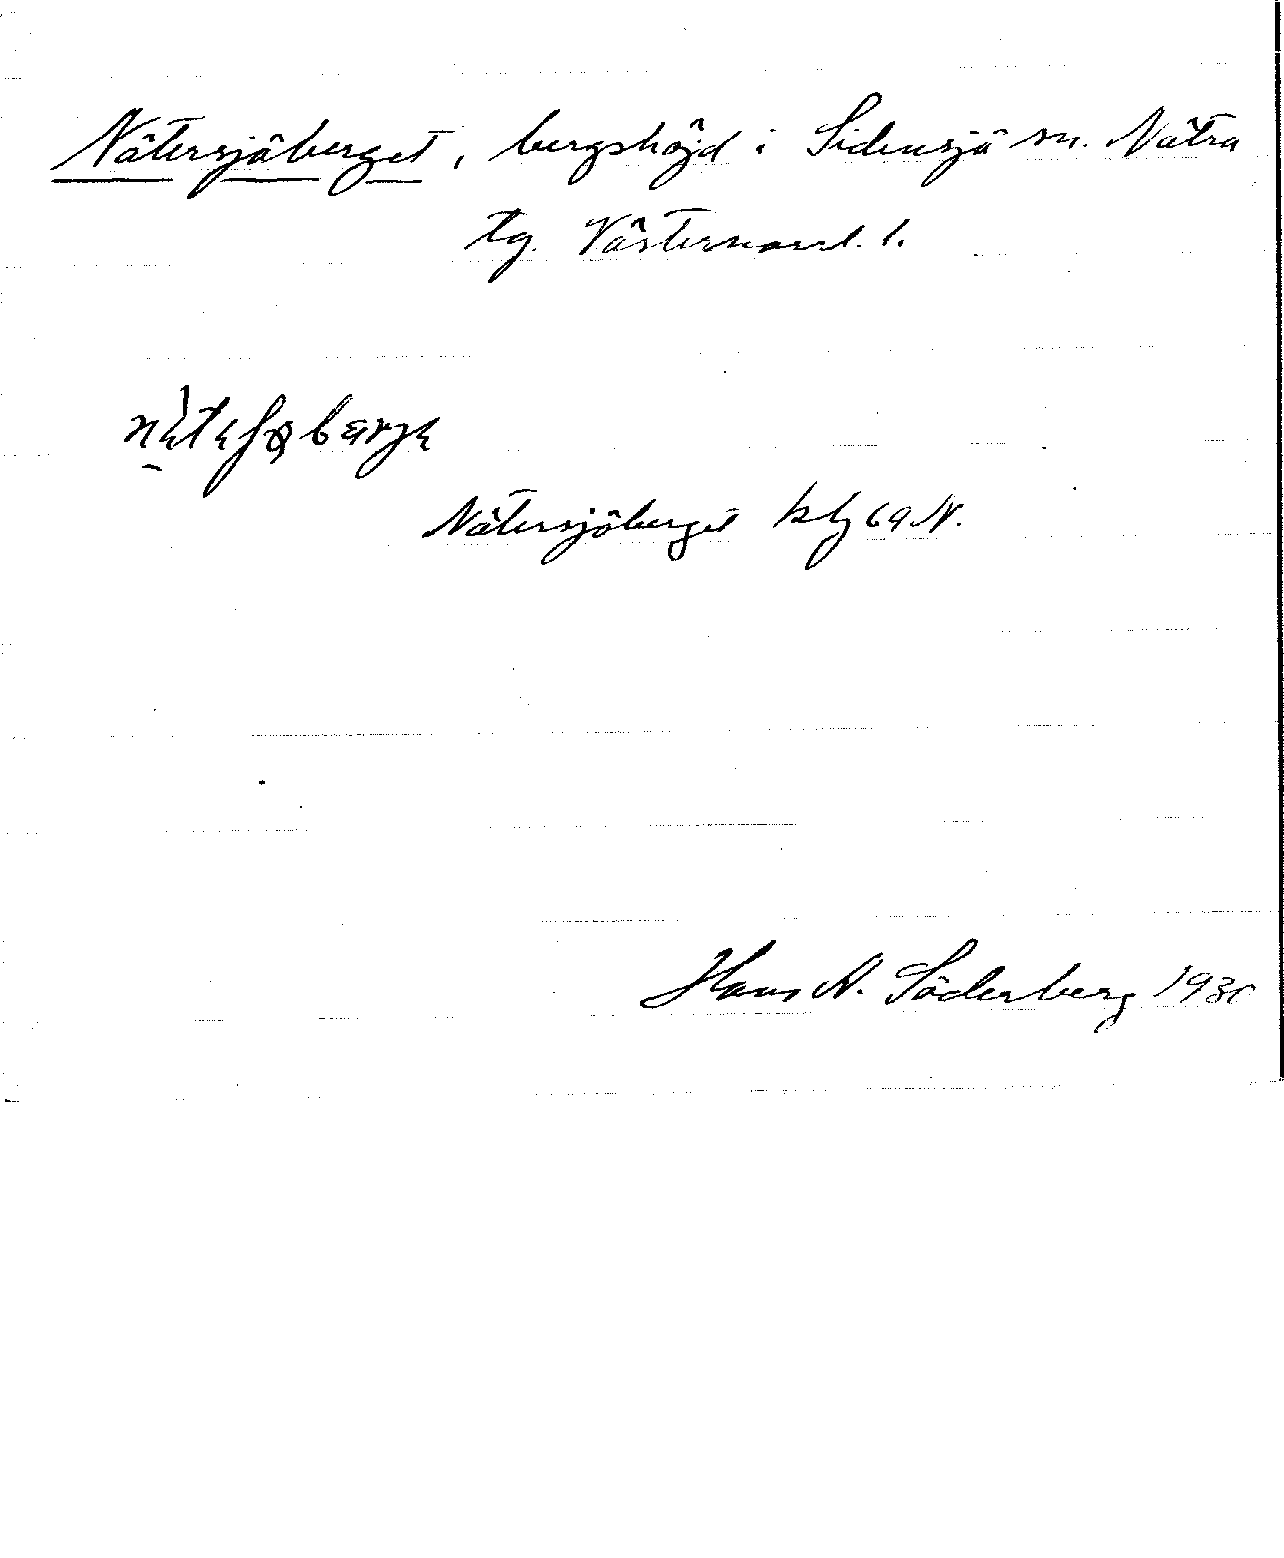 Nätersjöberget, bergshöjd i Sidensjö sn. Nätra
tg. Västernorrl. l.
Nätersjöberget kbl 69 N.
Hans N. Söderberg 1930